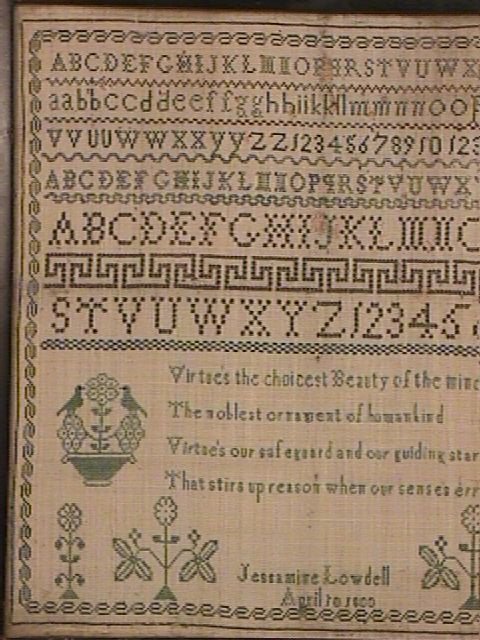 ABCDEFGHIJKLMNOPQRSTVUWX
aabbccddeeffgghhiikkllmmnnoop
VVUUWWXXYYZZ1234567891012
ABCDEFGHIJKLMNOPQRSTVUWXY
ABCDEFGHIJKLMNO
STVUWXYZ123456
Virtue's the choicest Beauty of the mind
The noblest ornament of humankind
Virtue's our safeguard and our guiding star
That stirs up reason when our senses err
Jessamine Lowdell
April